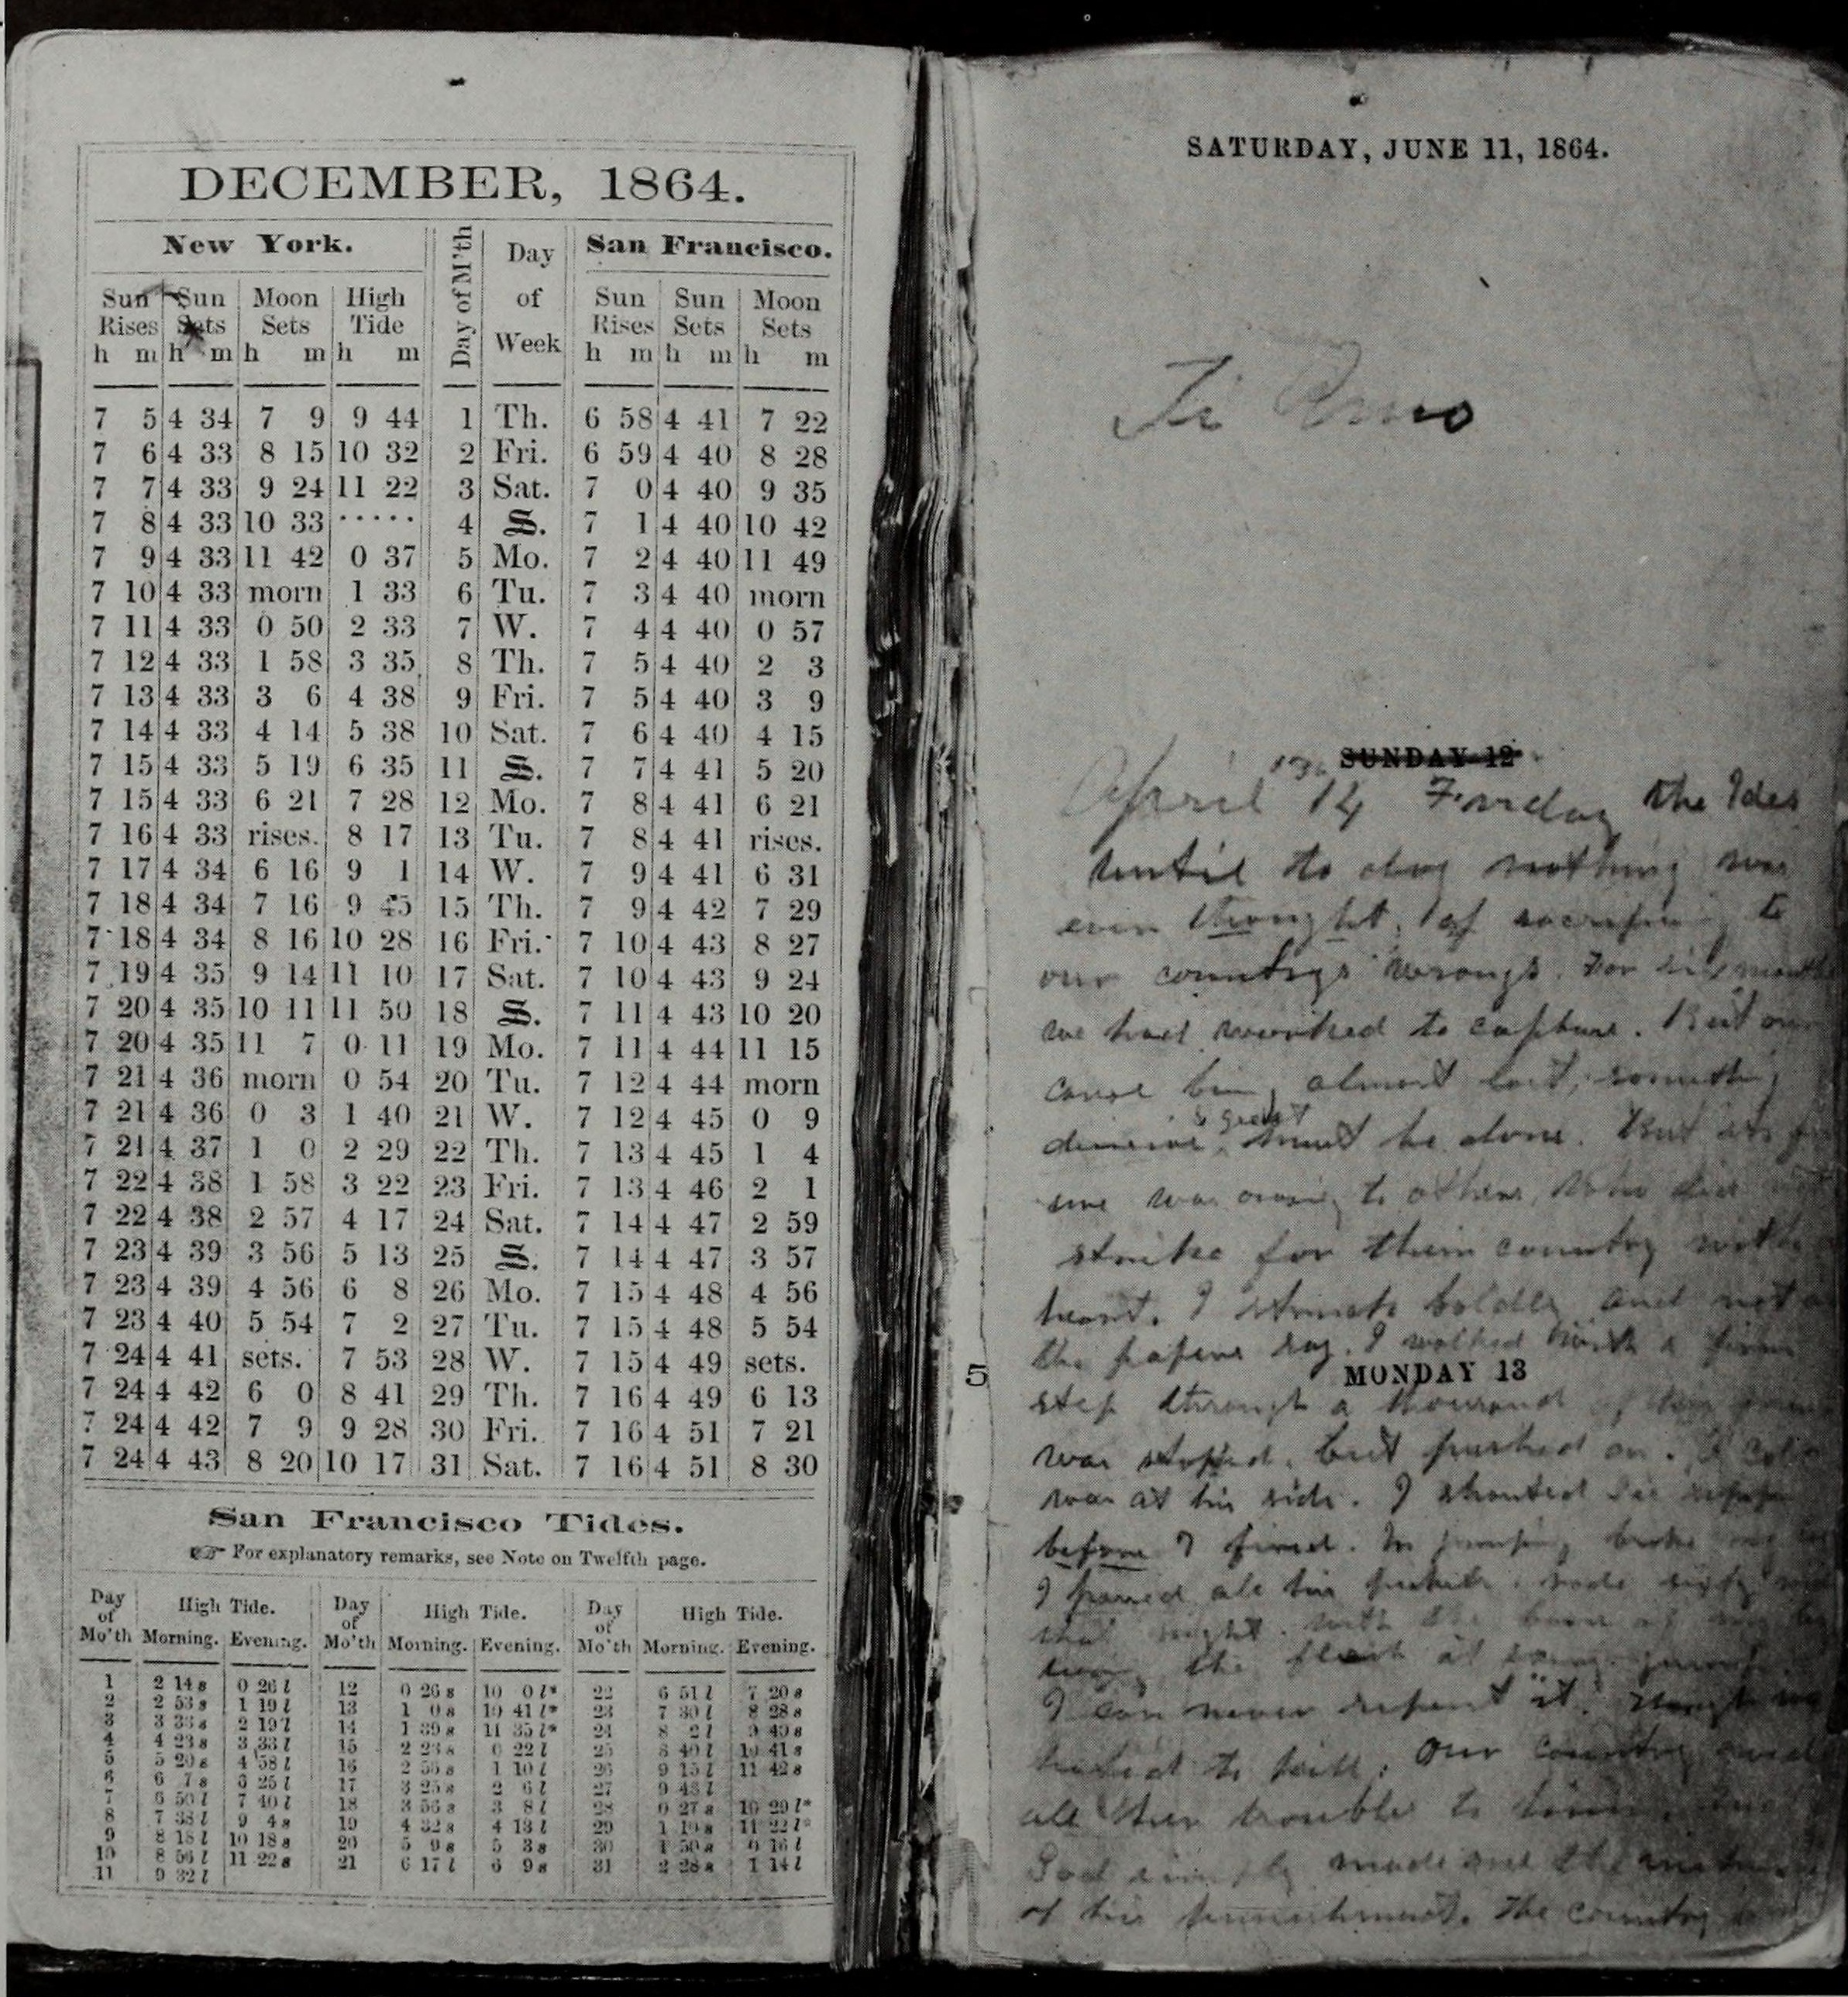 DECEMBER, 1864.
New York. Day of M'th Day of Week San Francisco.
Sun Rises Sun Sets Moon Sets High Tide Sun Rises Sun Sets Moon Sets
h m h m h m h m h m h m h m
7 5 4 34 7 9 9 44 1 Th. 6 58 4 41 7 22
7 6 4 33 8 15 10 32 2 Fri. 6 59 4 40 8 28
7 7 4 33 9 24 11 22 3 Sat. 7 0 4 40 9 35
7 8 4 33 10 33 ····· 4 S. 7 1 4 40 10 42
7 9 4 33 11 42 0 37 5 Mo. 7 2 4 40 11 49
7 10 4 33 morn 1 33 6 Tu. 7 3 4 40 morn
7 11 4 33 0 50 2 33 7 W. 7 4 4 40 0 57
7 12 4 33 1 58 3 35 8 Th. 7 5 4 40 2 3
7 13 4 33 3 6 4 38 9 Fri. 7 5 4 40 3 9
7 14 4 33 4 14 5 38 10 Sat. 7 6 4 40 4 15
7 15 4 33 5 19 6 35 11 S. 7 7 4 41 5 20
7 15 4 33 6 21 7 28 12 Mo. 7 8 4 41 6 21
7 16 4 33 rises. 8 17 13 Tu. 7 8 4 41 rises.
7 17 4 34 6 16 9 1 14 W. 7 9 4 41 6 31
7 18 4 34 7 16 9 45 15 Th. 7 9 4 42 7 29
7 18 4 34 8 16 10 28 16 Fri. 7 10 4 43 8 27
7 19 4 35 9 14 11 10 17 Sat. 7 10 4 43 9 24
7 20 4 35 10 11 11 50 18 S. 7 11 4 43 10 20
7 20 4 35 11 7 0 11 19 Mo. 7 11 4 44 11 15
7 21 4 36 morn 0 54 20 Tu. 7 12 4 44 morn
7 21 4 36 0 3 1 40 21 W. 7 12 4 45 0 9
7 21 4 37 1 0 2 29 22 Th. 7 13 4 45 1 4
7 22 4 38 1 58 3 22 23 Fri. 7 13 4 46 2 1
7 22 4 38 2 57 4 17 24 Sat. 7 14 4 47 2 59
7 23 4 39 3 56 5 13 25 S. 7 14 4 47 3 57
7 23 4 39 4 56 6 8 26 Mo. 7 15 4 48 4 56
7 23 4 40 5 54 7 2 27 Tu. 7 15 4 48 5 54
7 24 4 41 sets. 7 53 28 W. 7 15 4 49 sets.
7 24 4 42 6 0 8 41 29 Th. 7 16 4 49 6 13
7 24 4 42 7 9 9 28 30 Fri. 7 16 4 51 7 21
7 24 4 43 8 20 10 17 31 Sat. 7 16 4 51 8 30
San Francisco Tides.
☞ For explanatory remarks, see Note on Twelfth page.
Day of Mo'th High Tide. Day of Mo'th High Tide. Day of Mo'th High Tide.
Morning. Evening. Morning. Evening. Morning. Evening.
1 2 14 s 0 26 l 12 0 26 s 10 0 l* 22 6 51 l 7 20 s
2 2 53 s 1 19 l 13 1 0 s 10 41 l* 23 7 30 l 8 28 s
3 3 33 s 2 19 l 14 11 35 l* 24 8 2 l 9 40 s
4 4 23 s 3 33 l 15 2 23 s 0 22 l 25 8 40 l 10 41 s
5 5 20 s 4 58 l 16 1 10 l 26 9 15 l 11 42 s
6 6 7 s 6 25 l 17 3 25 s 2 6 l 27
7 6 50 l 7 40 l 18 3 56 s 3 8 l 28 0 27 s 10 29 l*
8 7 38 l 9 4 s 19 4 32 s 4 13 l 29 11 22 l*
9 8 18 l 10 18 s 20 5 9 s 5 3 s 30 0 16 l
10 8 56 l 11 22 s 21 6 17 l 6 9 s 31 2 28 s 1 14 l
11 9 32 l
SATURDAY, JUNE 11, 1864.
Ti Amo
SUNDAY 12
April 14 the Ides
until to day nothing was
ever thought of to
our country's wrongs. For six months
we had worked to capture. But our
cause being almost lost, something
decisive & great must be done. But its
was owing to others, who did not
strike for their country with a
heart. I struck boldly and not as
the papers say. I walked with a firm
MONDAY 13
5
step through a thousand of his
was stopped, but pushed on. A
was at his side. I shouted Sic
before I fired. In jumping broke my
I passed all his pickets, rode sixty
that night, with the bone of my
the flesh at
I can never repent it, though we
hated to kill: Our country
all her troubles to him, and
God simply made me the
of his punishment. The country